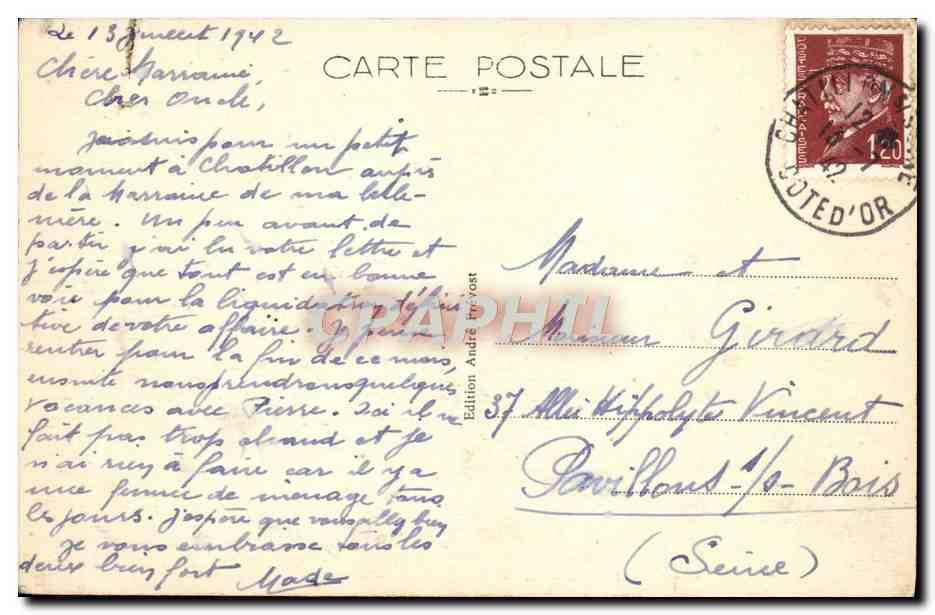 Le 13 juillet 1942
CARTE POSTALE
Chère Marraine,
Cher Oncle,
Je suis pour un petit
moment à Chatillon auprès
de la Marraine de ma belle-
mère. Un peu avant de
partir j'ai lu votre lettre et
j'espère que tout est en bonne
voie pour la liquidation défini
tive de votre affaire. Je pense
rentrer pour la fin de ce mois,
ensuite nous prendrons quelques
vacances avec Pierre. Ici il ne
fait pas trop chaud et je
n'ai rien à faire car il y a
une femme de ménage tous
les jours. J'espère que vous allez bien
Je vous embrasse tous les
deux bien fort Made
Edition André Prévost
CPAPHIL
1F20
CHATILLON-S-SEINE
13
-7
42
COTE D'OR
Madame et
Monsieur Girard
37 Allée Hippolyte Vincent
Pavillons s/s Bois
(Seine)